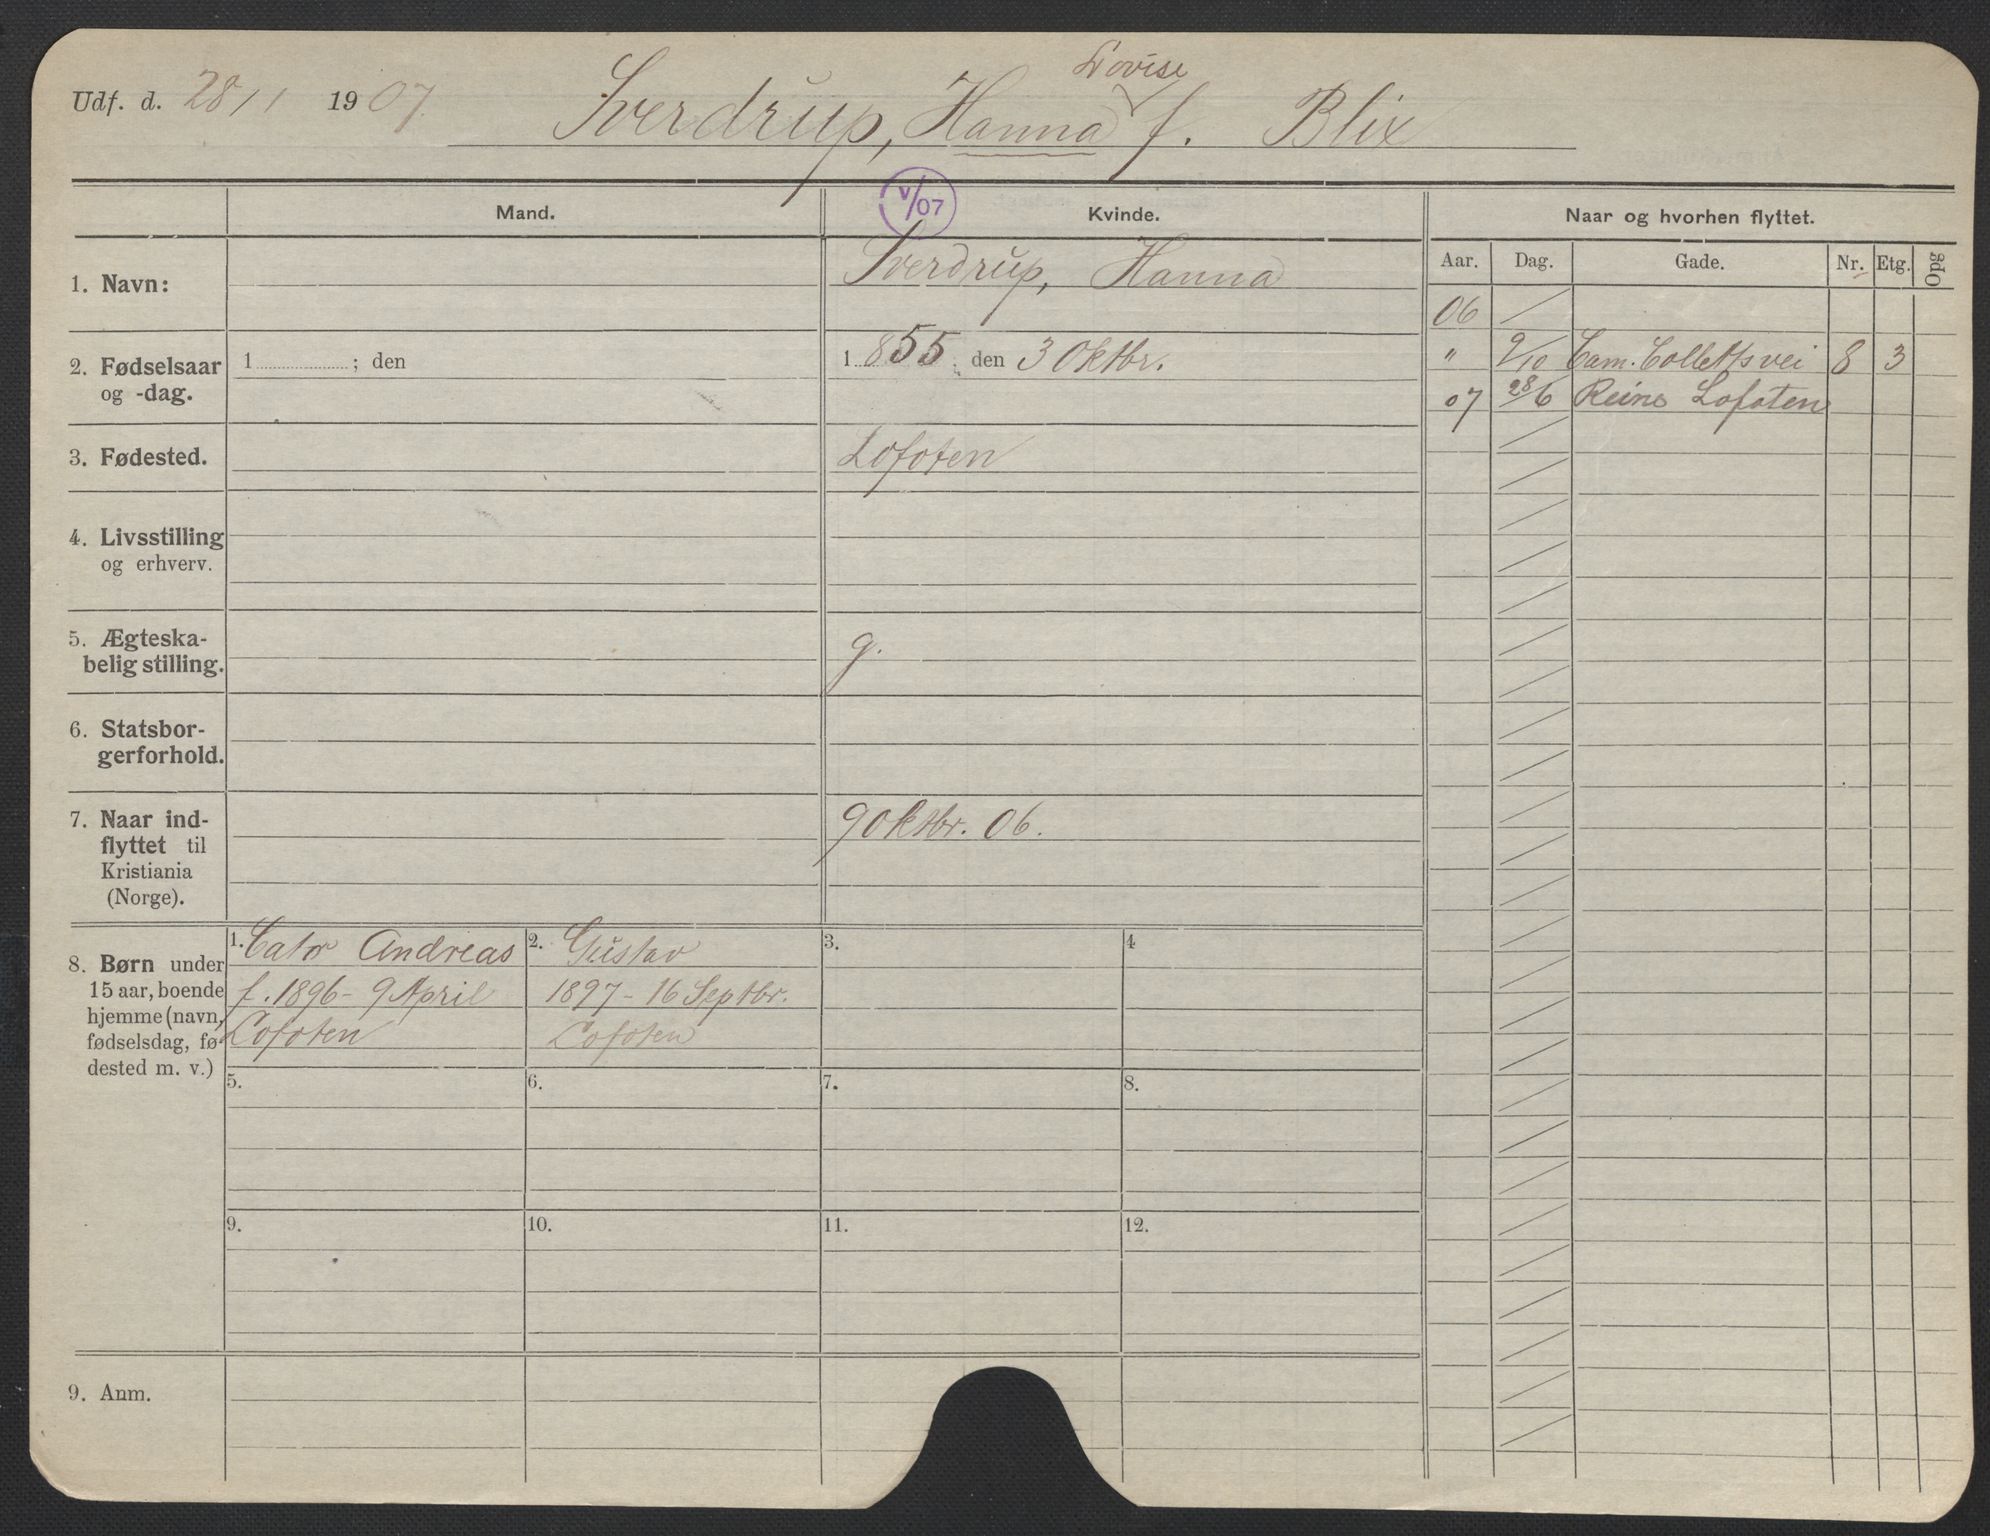 Lovise
Udf. d. 28/1 1907. Sverdrup, Hanna f. Blix
V/07
Mand. Kvinde. Naar og hvorhen flyttet.
Aar. Dag. Gade. Nr. Etg. Opg
1. Navn: Sverdrup, Hanna
06
2. Fødselsaar og -dag. 1 ; den 1 855 ; den 3 Oktbr.
" 9/10 Cam. Colletts vei 8 3
07 28/6 Reine Lofoten
3. Fødested. Lofoten
4. Livsstilling
og erhverv.
5. Ægteska-
belig stilling. g.
6. Statsbor-
gerforhold.
7. Naar ind-
flyttet til
Kristiania
(Norge).
9 Oktbr. 06.
8. Børn under
15 aar, boende
hjemme (navn,
fødselsdag, fø-
dested m. v.)
1. Cato Andreas
f. 1896 - 9 April
Lofoten
2. Gustav
1897 - 16 Septbr.
Lofoten
3.
4
5.
6.
7.
8.
9.
10.
11.
12.
9. Anm.